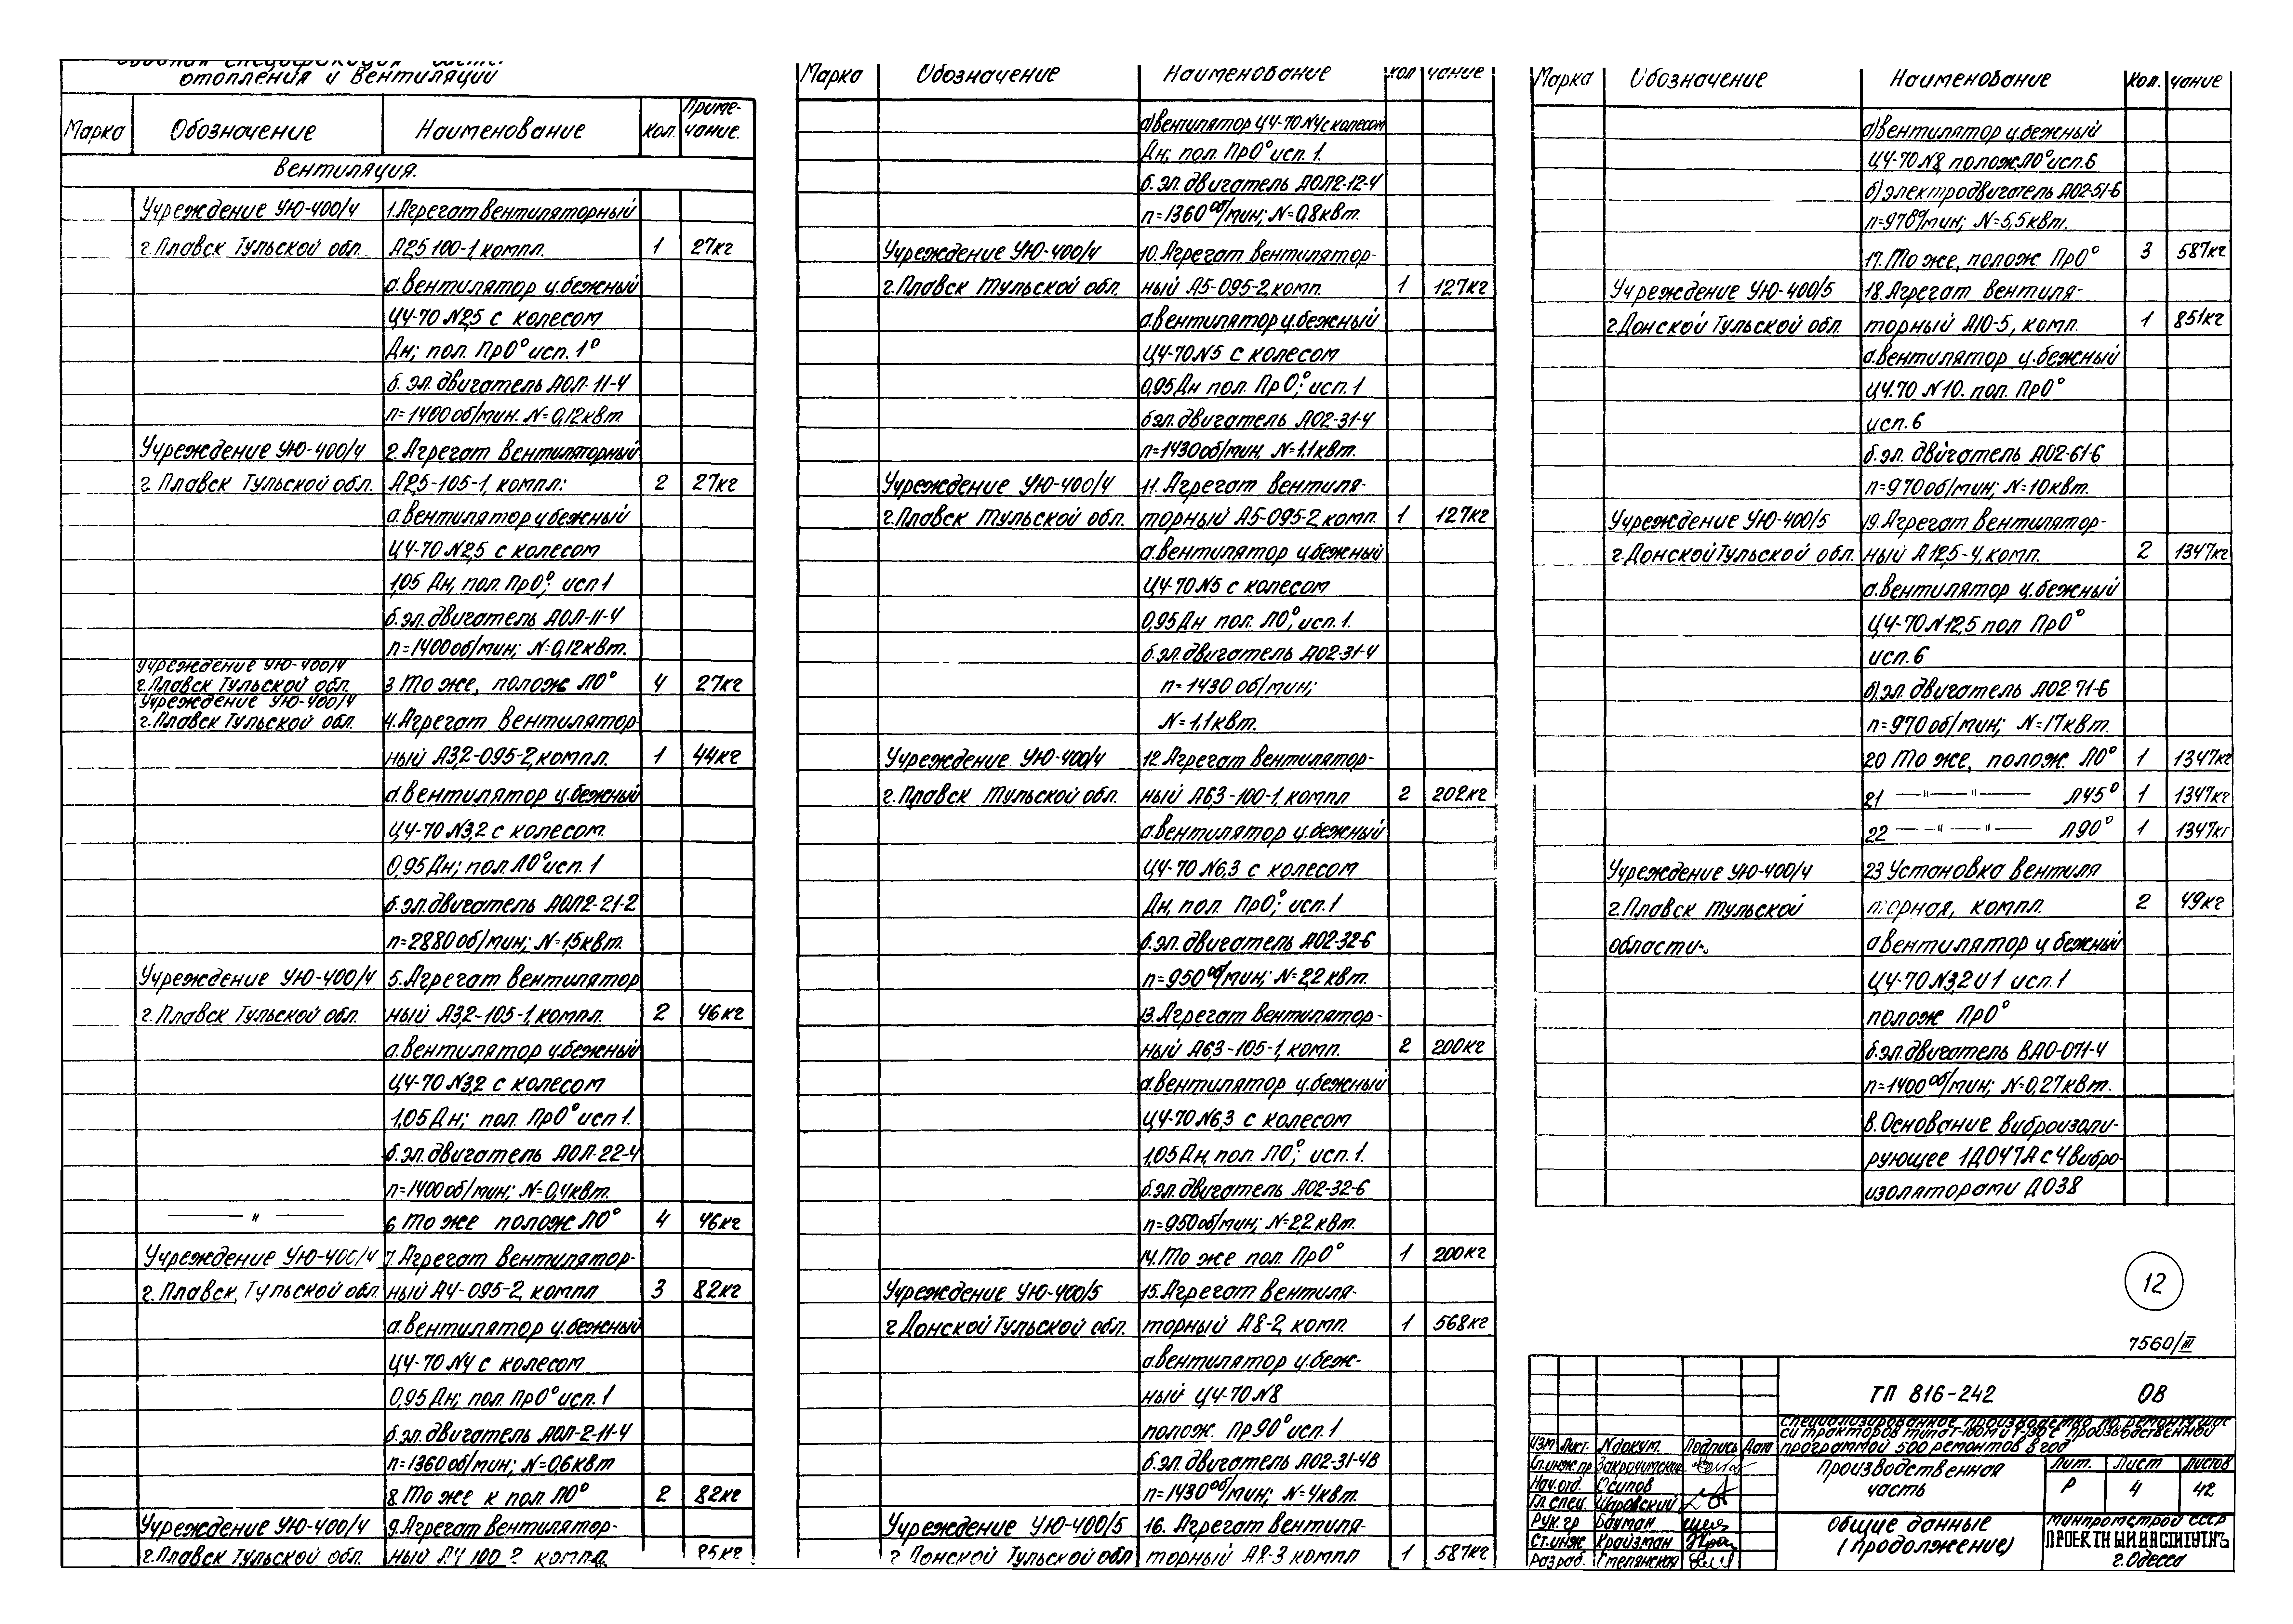 отопления и вентиляции
Марка Обозначение Наименование Кол. Приме-чание.
Вентиляция.
Учреждение УЮ-400/4 1.Агрегат вентиляторный
г.Плавск Тульской обл. А2,5 100-1 компл. 1 27кг
а.вентилятор ц.бежный
Ц4-70 N2,5 с колесом
Дн; пол. Пр0° исп. 1°
б. эл. двигатель АОЛ-11-4
n=1400 об/мин. N=0,12квт.
Учреждение УЮ-400/4 2.Агрегат вентиляторный
г. Плавск Тульской обл. А2,5-105-1, компл: 2 27кг
а.вентилятор ц.бежный
Ц4-70 N2,5 с колесом
1,05 Дн, пол. Пр0°; исп 1
б.эл. двигатель АОЛ-11-4
n=1400об/мин; N=0,12квт.
Учреждение УЮ-400/4
г.Плавск Тульской обл. 3 То же, полож Л0° 4 27кг
Учреждение УЮ-400/4
г.Плавск Тульской обл. 4.Агрегат вентилятор-
ный А3,2-095-2, компл. 1 44кг
а.вентилятор ц.бежный
Ц4-70 N3,2 с колесом.
0,95 Дн; пол. Л0° исп. 1
б.эл.двигатель АОЛ2-21-2
n=2880 об/мин; N=1,5квт.
Учреждение УЮ-400/4 5.Агрегат вентилятор
г.Плавск Тульской обл. ный А3,2-105-1, компл. 2 46кг
а.вентилятор ц.бежный
Ц4-70 N3,2 с колесом
1,05 Дн; пол. Пр0° исп 1.
б.эл. двигатель АОЛ-22-4
n=1400об/мин; N=0,4квт.
— " — 6 То же полож Л0° 4 46кг
Учреждение УЮ-400/4 7.Агрегат вентилятор-
г.Плавск, Тульской обл. ный А4-095-2, компл 3 82кг
а.вентилятор ц.бежный
Ц4-70 N4 с колесом
0,95 Дн; пол. Пр0° исп. 1
б.эл. двигатель АОЛ-2-11-4
n=1360об/мин; N=0,6квт
8 То же к пол. Л0° 2 82кг
Учреждение УЮ-400/4 9.Агрегат вентилятор-
г.Плавск Тульской обл. ный А4 100 2 компл. 85кг
Марка Обозначение Наименование Кол чание
а)вентилятор Ц4-70 N4 с колесом
Дн; пол. Пр0° исп. 1.
б. эл. двигатель АОЛ2-12-4
n=1360 об/мин; N=0,8квт.
Учреждение УЮ-400/4 10.Агрегат вентилятор-
г.Плавск Тульской обл. ный А5-095-2, комп. 1 127кг
а.вентилятор ц.бежный
Ц4-70N5 с колесом
0,95 Дн пол. Пр0°; исп. 1
б эл. двигатель АО2-31-4
n=1430об/мин. N=1,1квт.
Учреждение УЮ-400/4 11. Агрегат вентиля-
г.Плавск Тульской обл. торный А5-095-2, комп. 1 127кг
а.вентилятор ц.бежный
Ц4-70N5 с колесом
0,95 Дн пол. Л0°; исп. 1.
б.эл. двигатель АО2-31-4
n=1430 об/мин;
N=1,1квт.
Учреждение УЮ-400/4 12.Агрегат вентилятор-
г.Плавск Тульской обл. ный А63-100-1, компл 2 202кг
а.вентилятор ц.бежный
Ц4-70 N6,3 с колесом
Дн, пол. Пр0°; исп. 1
б.эл. двигатель АО2-32-6
n=950об/мин; N=2,2 квт.
13.Агрегат вентилятор-
ный А63-105-1, комп. 2 200кг
а.вентилятор ц.бежный
Ц4-70 N6,3 с колесом
1,05 Дн, пол. Л0°; исп. 1.
б.эл. двигатель АО2-32-6
n=950об/мин; N=2,2 квт.
14.То же пол. Пр0° 1 200кг
Учреждение УЮ-400/5 15.Агрегат вентиля-
г Донской Тульской обл. торный А8-2, комп. 1 568кг
а.вентилятор ц.беж-
ный Ц4-70 N8
полож. Пр 90° исп. 1
б.эл. двигатель АО2-31-4В
n=1430об/мин; N=4квт.
Учреждение УЮ-400/5 16. Агрегат вентиля-
г Донской Тульской обл торный А8-3 компл 1 587кг
Марка Обозначение Наименование Кол. чание
а)вентилятор ц.бежный
Ц4-70 N8, полож.Л0° исп.6
б)электродвигатель АО2-51-6
n=970об/мин; N=5,5квт.
17.То же, полож. Пр0° 3 587кг
Учреждение УЮ-400/5 18.Агрегат вентиля-
г.Донской Тульской обл. торный А10-5, комп. 1 851кг
а.вентилятор ц.бежный
Ц4.70 N10. пол. Пр0°
исп. 6
б.эл. двигатель АО2-61-6
n=970об/мин; N=10квт.
Учреждение УЮ-400/5 19.Агрегат вентилятор-
г.Донской Тульской обл. ный А12,5-4, комп. 2 1347кг
а.вентилятор ц.бежный
Ц4-70N12,5 пол Пр0°
исп. 6
б).эл. двигатель АО2-71-6
n=970об/мин; N=17квт.
20 То же, полож. Л0° 1 1347кг
21 — " — " — Л45° 1 1347кг
22 — " — " — Л90° 1 1347кг
Учреждение УЮ-400/4 23 Установка вентиля
г.Плавск Тульской торная, компл. 2 49кг
области. а вентилятор ц бежный
Ц4-70 N3,2 И1 исп. 1
полож Пр0°
б.эл.двигатель ВАО-071-4
n=1400об/мин; N=0,27квт.
в.Основание виброизоли-
рующее 1Д047А с 4 вибро-
изоляторами Д038
12
7560/III
ТП 816-242 ОВ
специализированное производство по ремонту шас
си тракторов типа Т-100М и Т-130 с производственной
программой 500 ремонтов в год
Изм Лист. N докум. Подпись Дата
Гл.инж.пр
Нач.отд. Осипов
Гл.спец. Шаровский
Рук.гр Бауман
Ст.инж Крайзман
Разраб. Смелянская
Производственная
часть
Лит. Лист Листов
Р 4 42
Общие данные
(продолжение)
Минпромстрой СССР
ПРОЕКТНЫЙ ИНСТИТУТ
г.Одесса